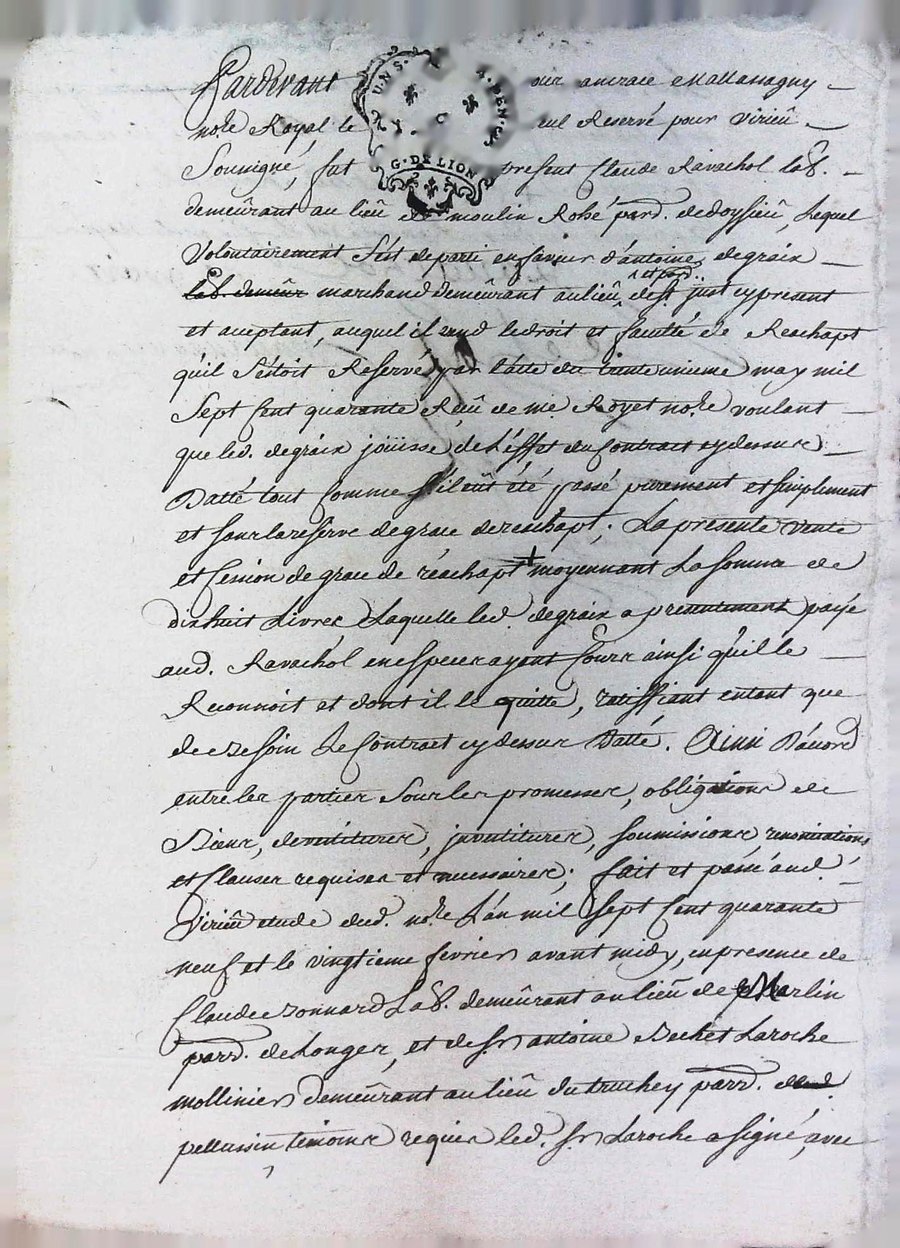 Pardevant
UN S. A. DEN. C.
G. DE LION
nore Royal le eul Reservé pour virieü
Sousigné, fut present Claude Ravachol lab.
demeürant au lieü de moulin Robé parr. de doysieü, Lequel
Volontairement s'est departi en faveur d'antoine degraix
lab. demeur marchand demeürant au lieü et parr. de st just cy present
et aceptant, auquel il vend le droit et faculté de Reachapt
qu'il s'etoit Reservé par l'acte du trente unieme may mil
Sept Cent quarante Reçü de me Royet nore voulant
que led. degraix joüisse de l'effet du Contract cy dessus
Datté tout Comme s'il eüt été passé purement et simplement
et sans la reserve de grace de reachapt; La presente vente
et Cession de grace de réachapt + moyennant La somme de
dixhuit Livres Laquelle led. degraix a presentement payé
aud. Ravachol en especes ayant Cours ainsi qu'il le
Reconnoit et dont il le quitte, ratiffiant entant que
de Besoin Le Contract cy dessus Datté. Ainsi D'acord
entre les parties sous les promesses, obligations de
Biens, devetitures, investitures, soumissions, renonciations
et Clauses requises et necessaires; fait et passé aud.
Virieü etude dud. nore L'an mil sept Cent quarante
neuf et le vingtieme fevrier avant midy, en presence de
Claude Bonnard Lab. demeürant au lieü de Marlin
parr. de Longes, et de sr antoine Bechet Laroche
mollinier demeürant au lieü du truchey parr. dud.
pellussin temoins requis led. sr Laroche a signé, avec